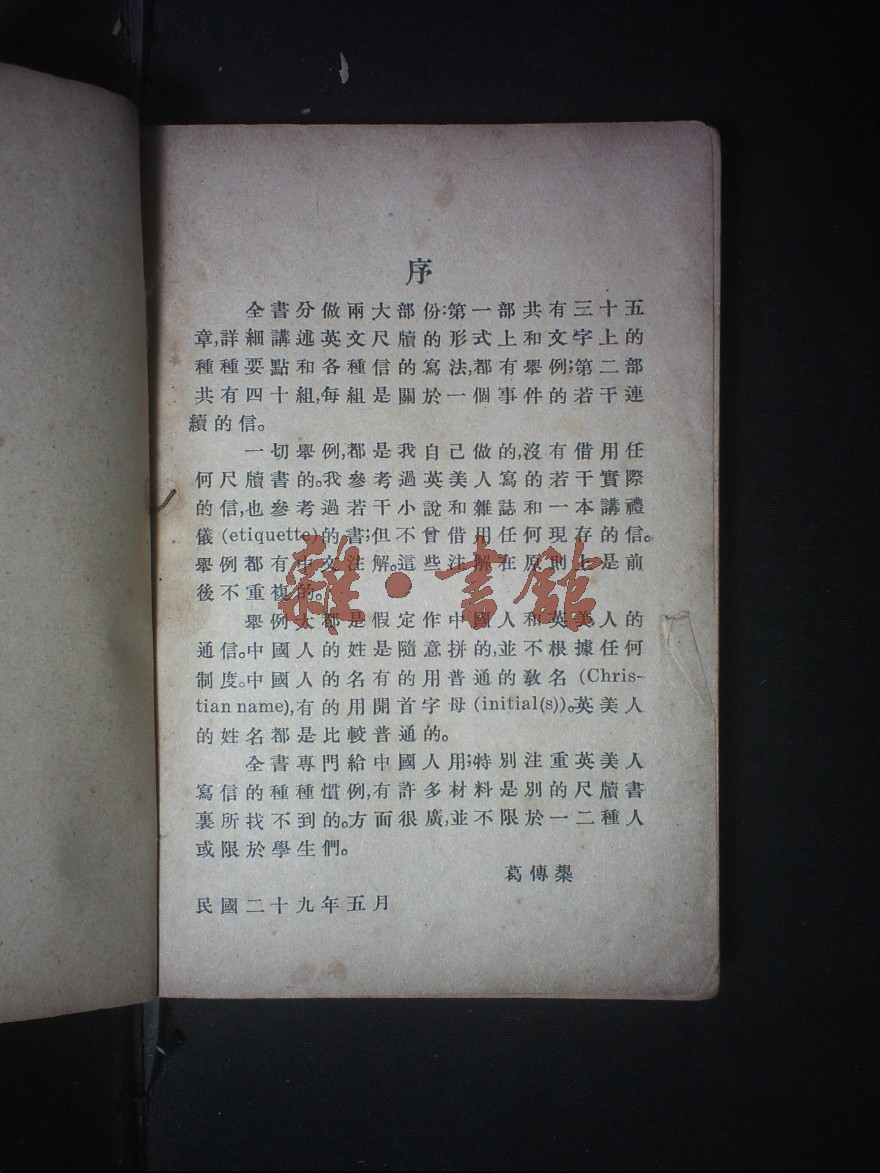 序
全書分做兩大部份:第一部共有三十五
章,詳細講述英文尺牘的形式上和文字上的
種種要點和各種信的寫法,都有舉例;第二部
共有四十組,每組是關於一個事件的若干連
續的信。
一切舉例,都是我自己做的,沒有借用任
何尺牘書的。我參考過英美人寫的若干實際
的信,也參考過若干小說和雜誌和一本講禮
儀(etiquette)的書;但不曾借用任何現存的信。
舉例都有中文注解。這些注解在原則上是前
後不重複的。
舉例大都是假定作中國人和英美人的
通信。中國人的姓是隨意拼的,並不根據任何
制度。中國人的名有的用普通的敎名(Chris-
tian name),有的用開首字母(initial(s))。英美人
的姓名都是比較普通的。
全書專門給中國人用;特別注重英美人
寫信的種種慣例,有許多材料是別的尺牘書
裏所找不到的。方面很廣,並不限於一二種人
或限於學生們。
葛傳槼
民國二十九年五月
雜·書館